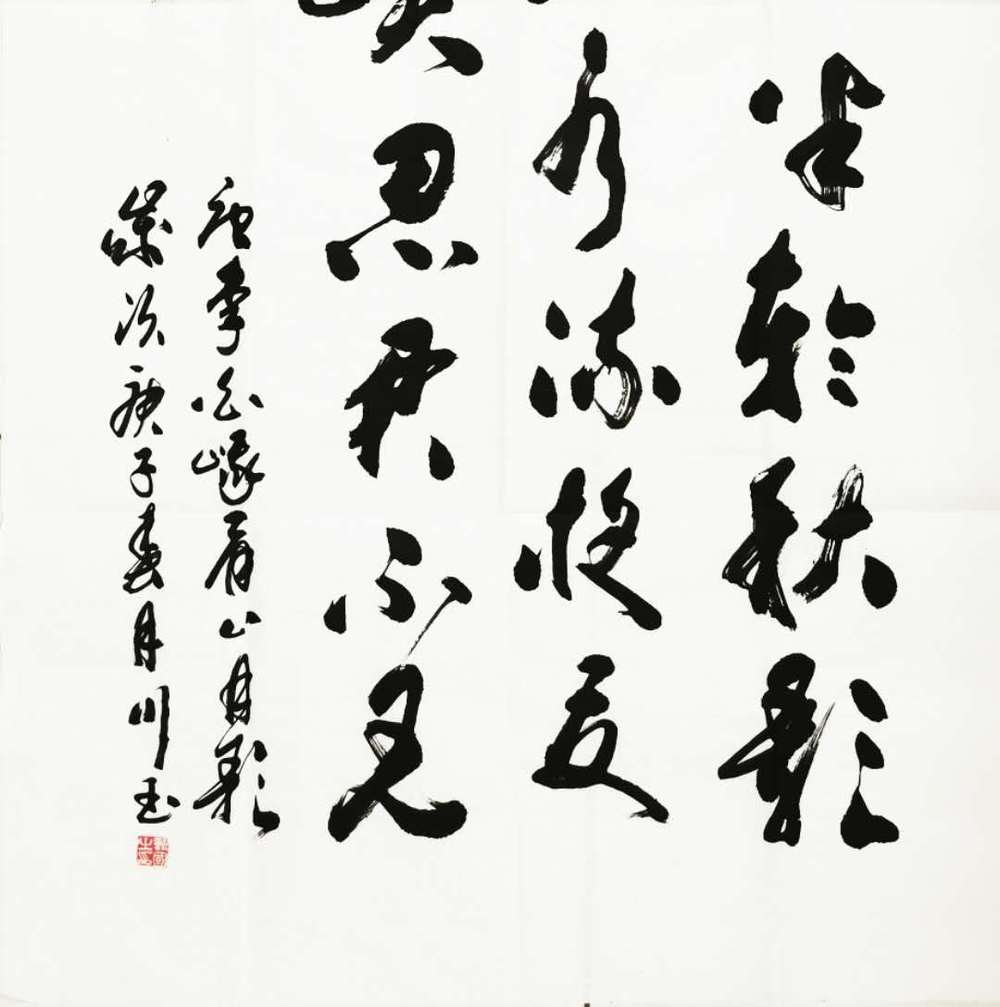 半轮秋影
水流夜发
思君不见
唐李白峨眉山月歌
岁次庚子春月川玉